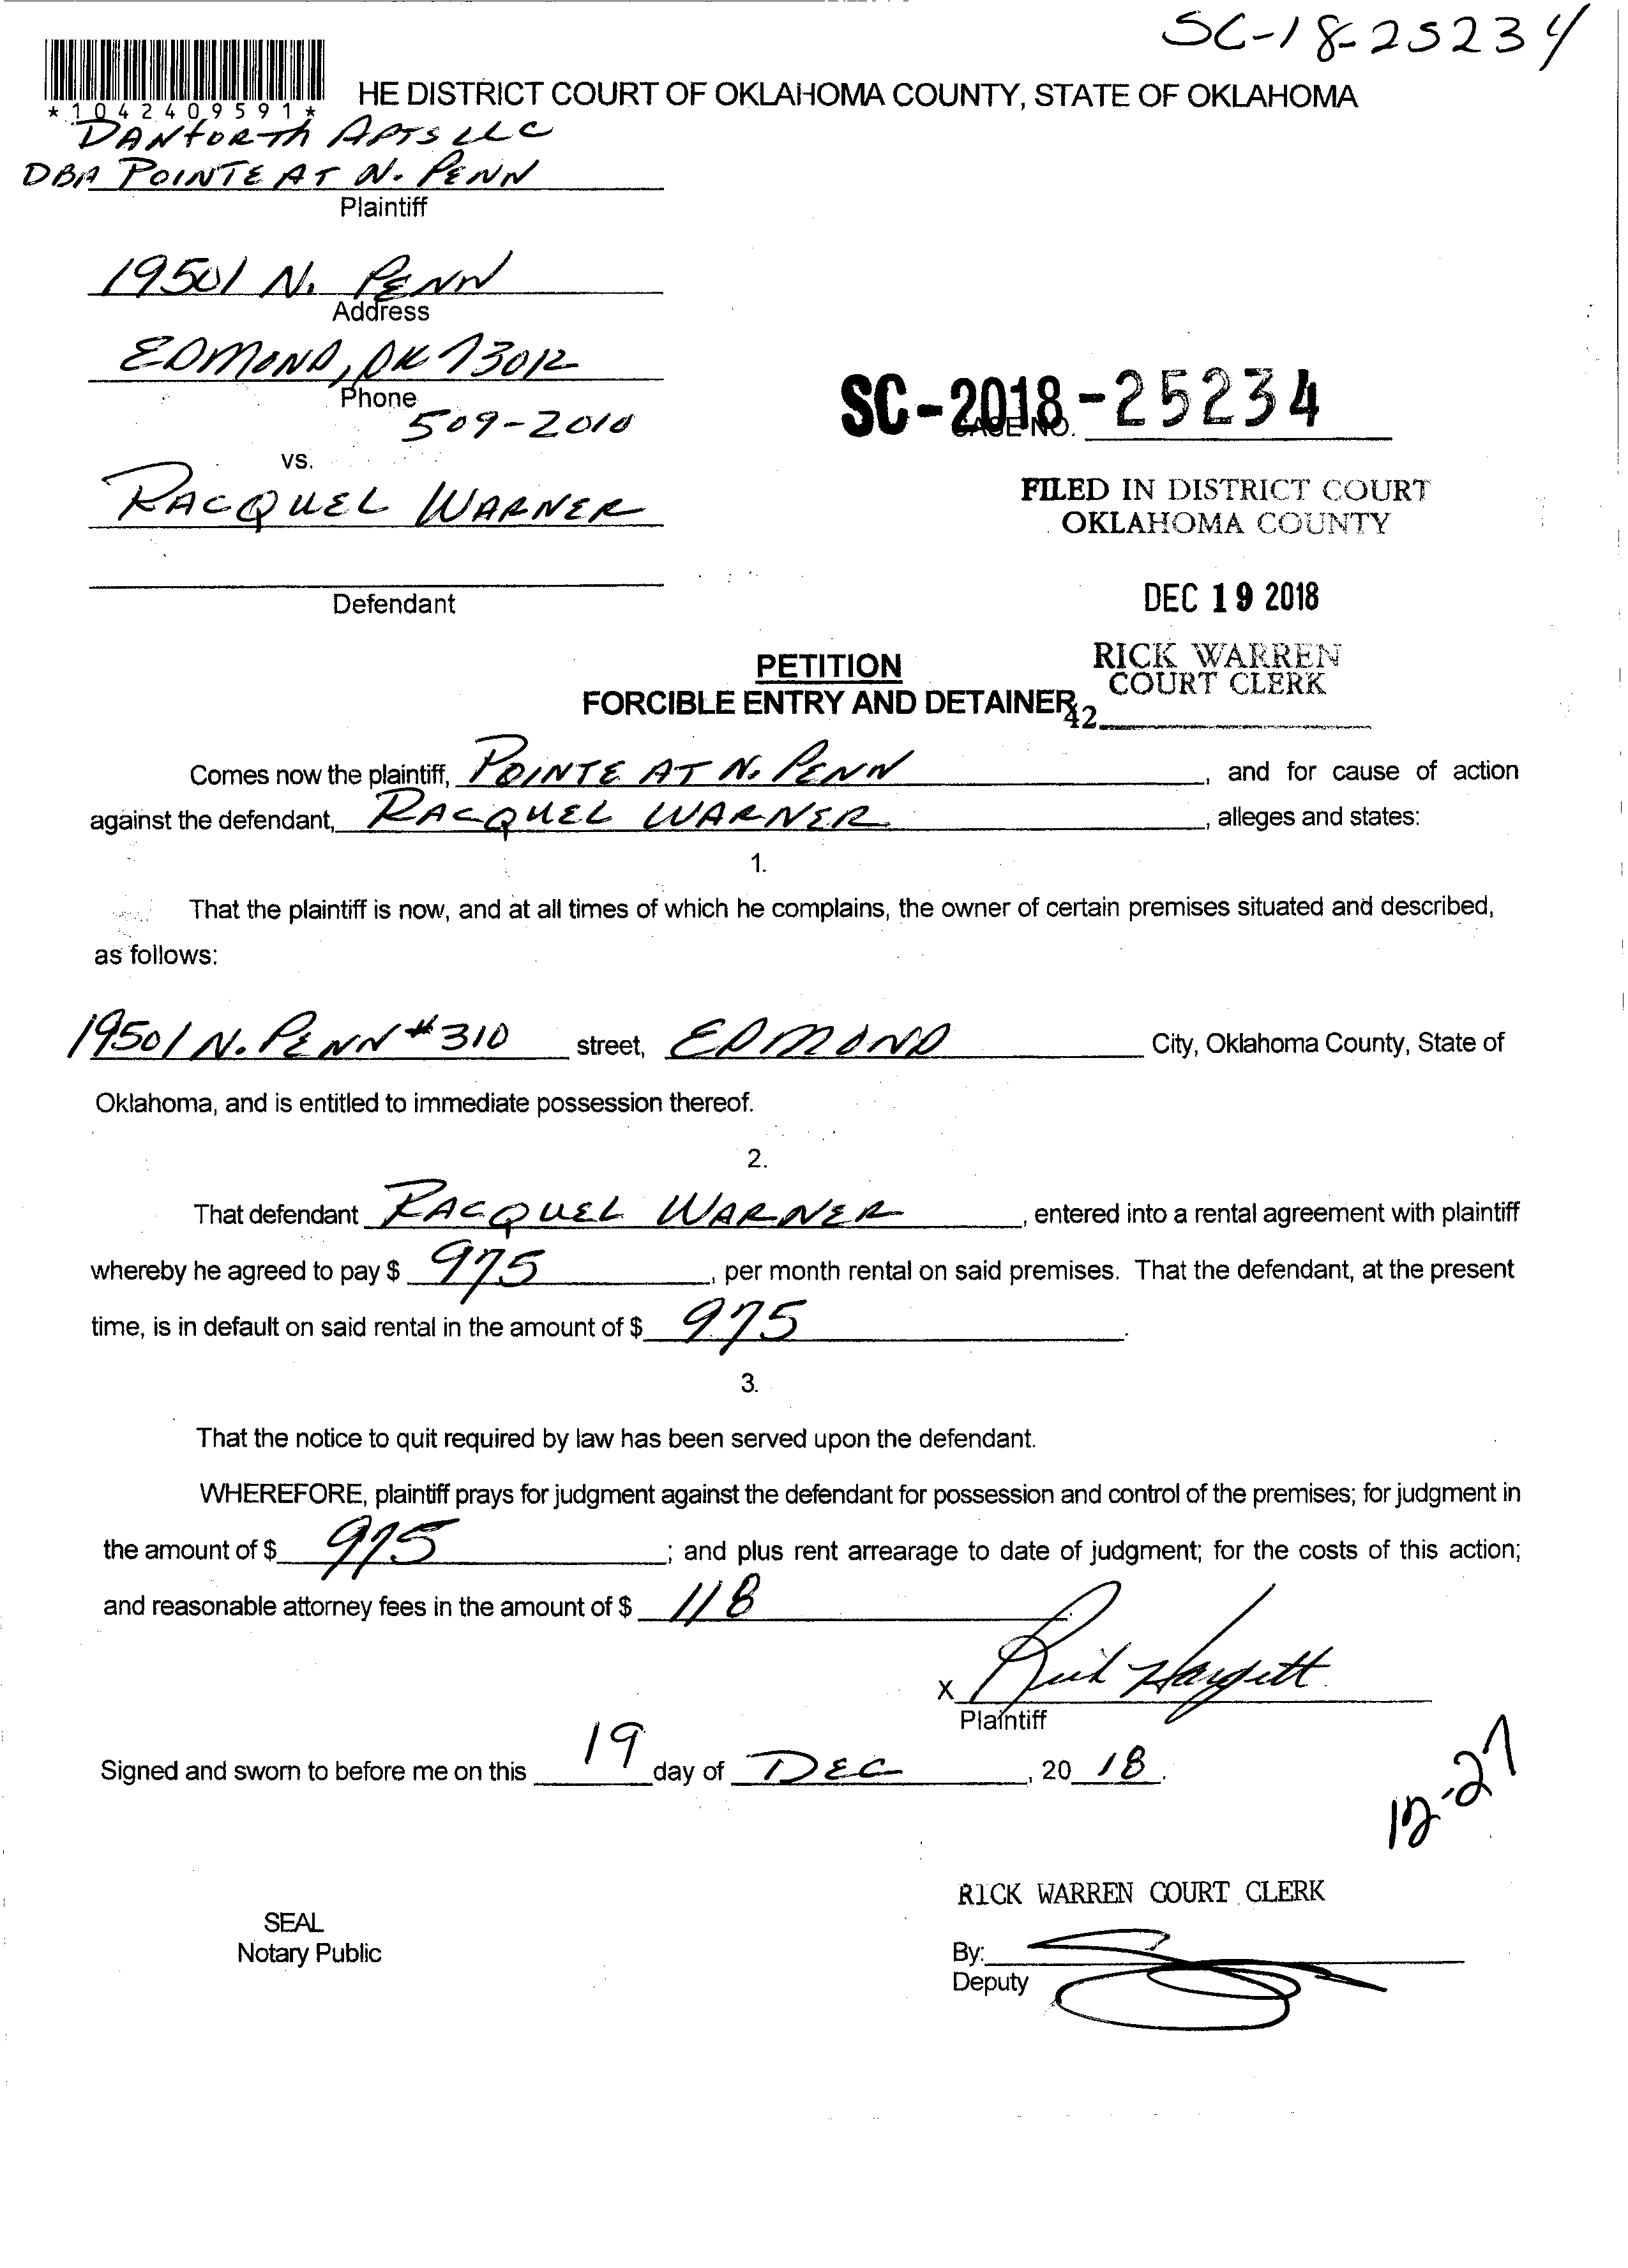 SC-18-25234
*1042409591*
HE DISTRICT COURT OF OKLAHOMA COUNTY, STATE OF OKLAHOMA
DANFORTH APTS LLC
DBA POINTE AT N. PENN
Plaintiff
19501 N. PENN
Address
EDMOND, OK 73012
Phone
509-2010
SC-2018-25234
CASE NO.
vs.
RACQUEL WARNER
FILED IN DISTRICT COURT
OKLAHOMA COUNTY
Defendant
DEC 19 2018
PETITION
RICK WARREN
COURT CLERK
FORCIBLE ENTRY AND DETAINER
42
Comes now the plaintiff, POINTE AT N. PENN, and for cause of action
against the defendant, RACQUEL WARNER, alleges and states:
1.
That the plaintiff is now, and at all times of which he complains, the owner of certain premises situated and described,
as follows:
19501 N. PENN #310 street, EDMOND City, Oklahoma County, State of
Oklahoma, and is entitled to immediate possession thereof.
2.
That defendant RACQUEL WARNER, entered into a rental agreement with plaintiff
whereby he agreed to pay $ 975, per month rental on said premises. That the defendant, at the present
time, is in default on said rental in the amount of $ 975.
3.
That the notice to quit required by law has been served upon the defendant.
WHEREFORE, plaintiff prays for judgment against the defendant for possession and control of the premises; for judgment in
the amount of $ 975; and plus rent arrearage to date of judgment; for the costs of this action;
and reasonable attorney fees in the amount of $ 118
X Rick Hargett
Plaintiff
Signed and sworn to before me on this 19 day of DEC, 20 18.
12-27
RICK WARREN COURT CLERK
SEAL
Notary Public
By:
Deputy